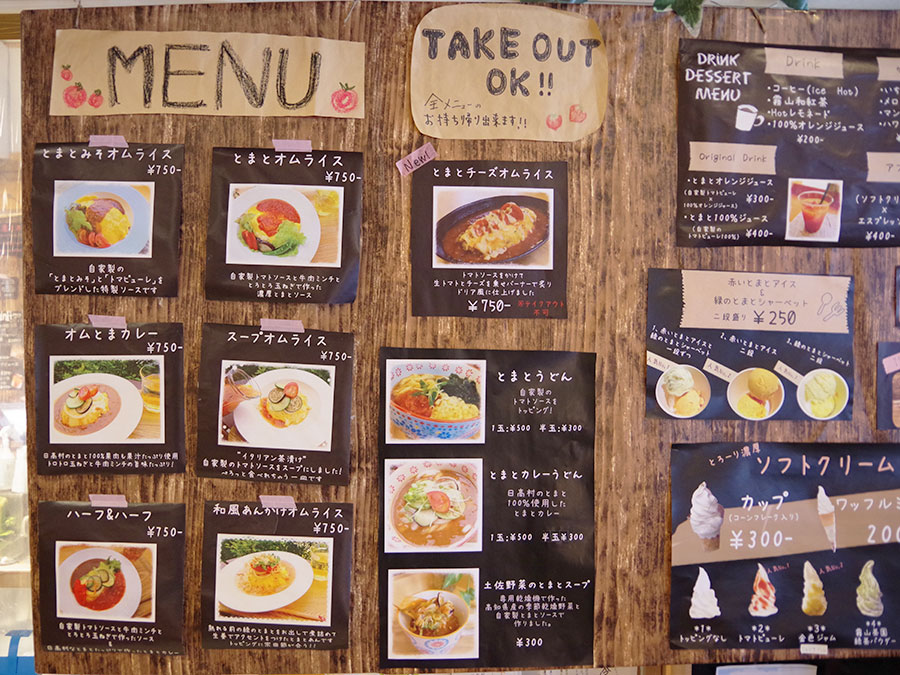 MENU
TAKE OUT
OK!!
全メニューの
お持ち帰り出来ます!!
とまとみそオムライス
¥750-
自家製の
「とまとみそ」と「トマピューレ」を
ブレンドした特製ソースです
とまとオムライス
¥750-
自家製トマトソースと牛肉ミンチと
とろとろ玉ねぎで作った
濃厚とまとソース
New!
とまとチーズオムライス
トマトソースをかけて
生トマトとチーズを乗せバーナーで炙り
ドリア風に仕上げました
¥750-
※テイクアウト
不可
オムとまカレー
¥750-
日高村のとまと100%果肉も果汁たっぷり使用
トロトロ玉ねぎと牛肉ミンチの旨味たっぷり!
スープオムライス
¥750-
"イタリアン茶漬け"
自家製のトマトソースをスープにしました!
ぺろっと食べれちゃう一皿です
ハーフ&ハーフ
¥750-
自家製トマトソースと牛肉ミンチと
とろとろ玉ねぎで作ったソース
和風あんかけオムライス
¥750-
とまとうどん
自家製の
トマトソースを
トッピング!
1玉:¥500 半玉¥300
とまとカレーうどん
日高村のとまと
100%使用した
とまとカレー
1玉:¥500 半玉¥300
土佐野菜のとまとスープ
専用乾燥機で作った
高知県産の季節乾燥野菜と
自家製とまとソースで
作りました。
¥300
DRINK
DESSERT
MENU
Drink
・コーヒー(Ice Hot)
・霧山和紅茶
・Hotレモネード
・100%オレンジジュース
¥200-
Original Drink
・とまとオレンジジュース
(自家製トマトピューレ
×
100%オレンジジュース)
¥300-
・とまと100%ジュース
(自家製の
トマトピューレ100%)
¥400-
(ソフトクリ
×
エスプレッ
¥400-
赤いとまとアイス
&
緑のとまとシャーベット
二段盛り ¥250
1、赤いとまとアイスと
緑のとまとシャーベット
一段ずつ
2、赤いとまとアイス
二段
3、緑のとまとシャーベット
二段
とろーり濃厚
ソフトクリーム
カップ
(コーンフレーク入り)
¥300-
ワッフルミ
200
人気No.1
人気No.2
*1
トッピングなし
*2
トマトピューレ
*3
金色ジャム
*4
霧山茶園
緑茶パウダー